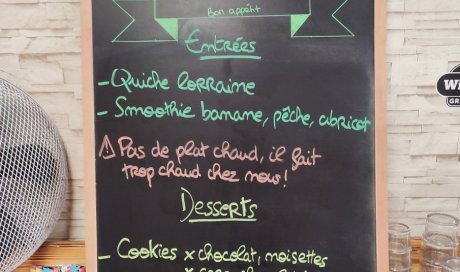 Bon appétit
Entrées
- Quiche lorraine
- Smoothie banane, pêche, abricot
⚠ Pas de plat chaud, il fait
trop chaud chez nous!
Desserts
- Cookies x chocolat, noisettes